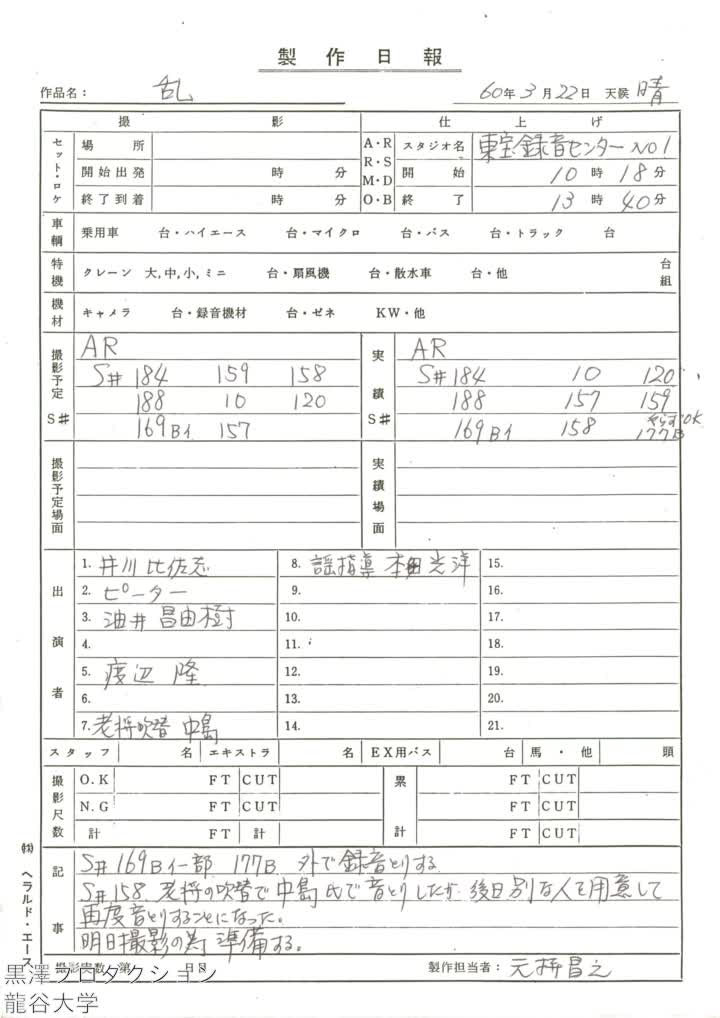 製作日報
作品名： 乱 60年3月22日 天候 晴
撮影 仕上げ
セット・ロケ 場所 A・R R・S M・D O・B スタジオ名 東宝録音センター NO1
開始出発 時 分 開始 10時18分
終了到着 時 分 終了 13時40分
車輌 乗用車 台・ハイエース 台・マイクロ 台・バス 台・トラック 台
特機 クレーン 大,中,小,ミニ 台・扇風機 台・散水車 台・他 台組
機材 キャメラ 台・録音機材 台・ゼネ KW・他
撮影予定 S# AR 実績 S# AR
S#184 159 158 S#184 10 120
188 10 120 188 157 159
169Bイ 157 169Bイ 158 177B
撮影予定場面 実績場面
出演者
1. 井川比佐志 8. 謡指導 本田光洋 15.
2. ピーター 9. 16.
3. 油井昌由樹 10. 17.
4. 11. 18.
5. 渡辺 隆 12. 19.
6. 13. 20.
7. 老将吹替 中島 14. 21.
スタッフ 名 エキストラ 名 EX用バス 台 馬・他 頭
撮影尺数 O.K FT CUT 累計 FT CUT
N.G FT CUT FT CUT
計 FT 計 FT CUT
記事
S#169Bイ一部 177B 外で録音とりする
S#158 老将の吹替で中島氏で音とりしたが 後日別な人を用意して
再度音とりすることになった。
明日撮影の為 準備する。
撮影実数 第 日目 製作担当者：
㈱ヘラルド・エース
黒澤プロダクション
龍谷大学